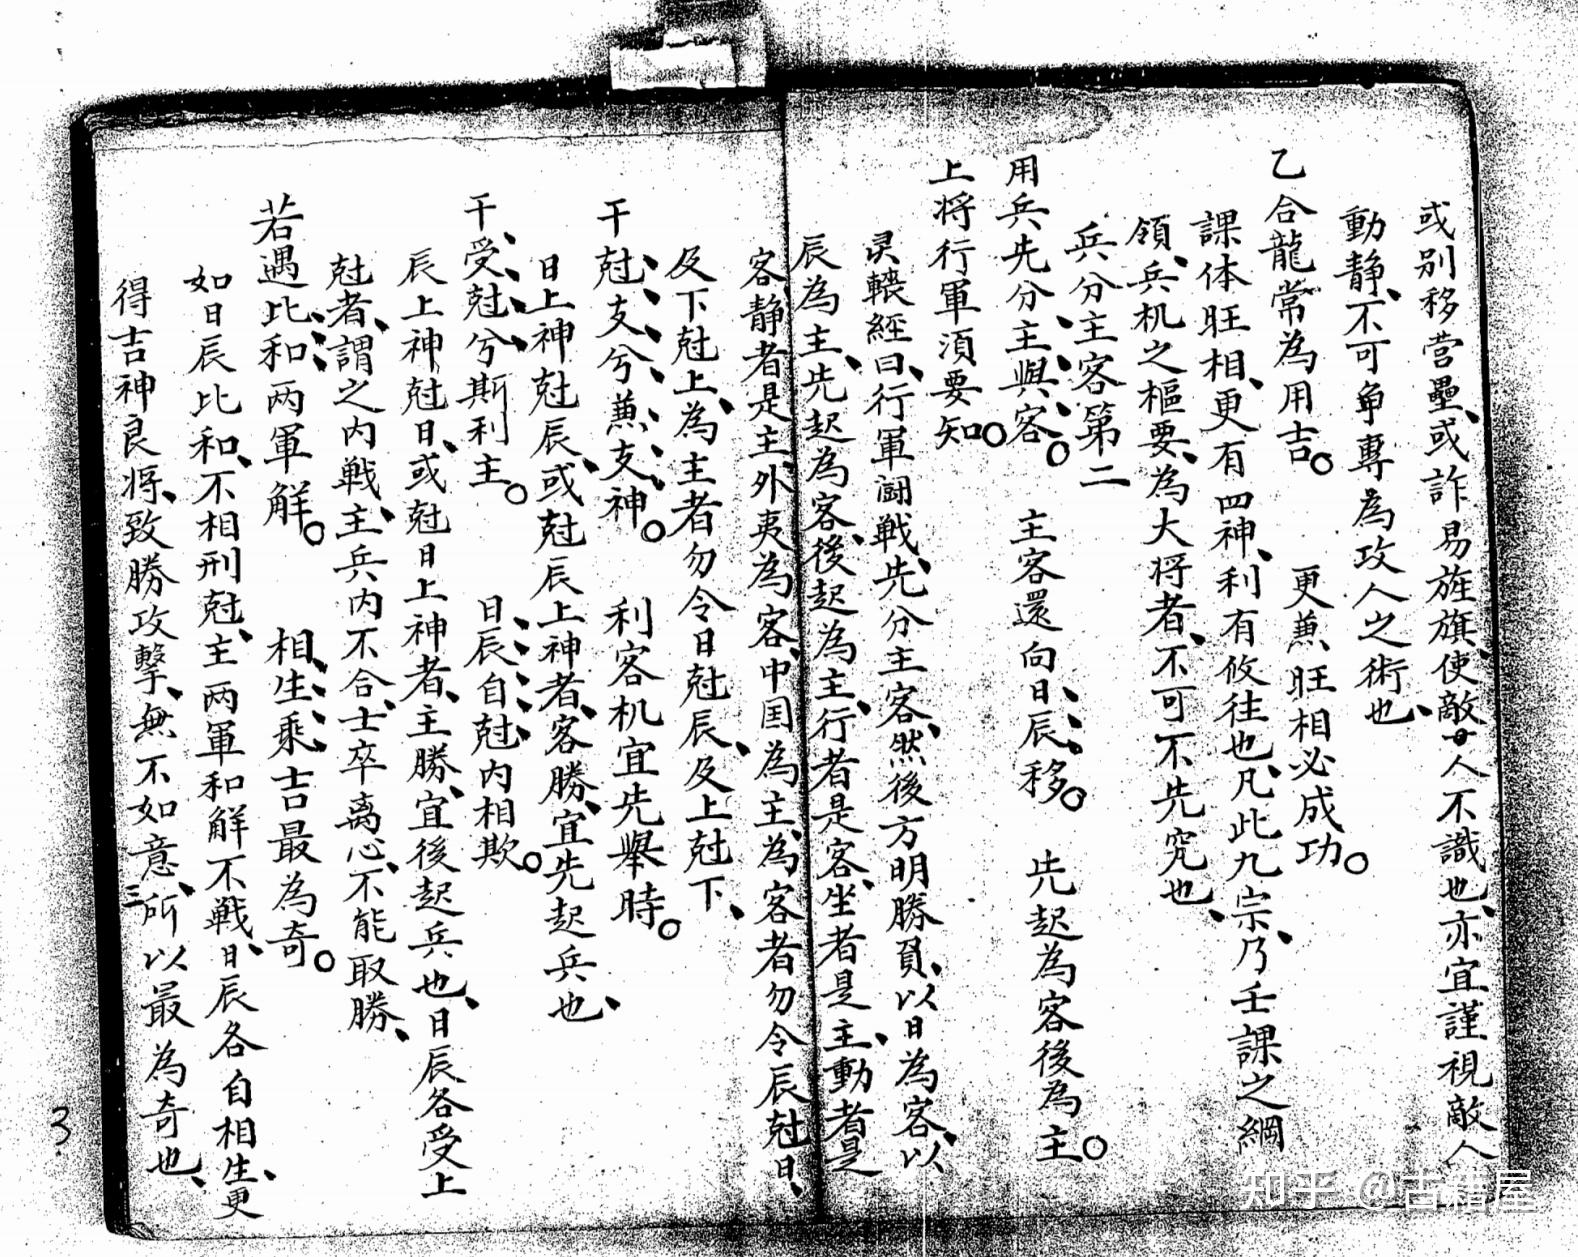 或别移营壘、或詐易旌旗、使敵人不識也、亦宜謹視敵人
動静、不可專為攻人之術也、
乙合龍常為用吉。 更兼旺相必成功。
課体旺相、更有四神、利有攸往也、凡此九宗、乃壬課之綱
領、兵机之樞要、為大将者、不可不先究也、
兵分主客第二
用兵先分主與客。 主客還向日辰移。 先起為客後為主。
上将行軍須要知。
灵轄經曰、行軍闘戦、先分主客、然後方明勝負、以日為客、以
辰為主、先起為客、後起為主、行者是客、坐者是主、動者是
客、静者是主、外夷為客、中囯為主、為客者勿令辰尅日、
及下尅上、為主者勿令日尅辰、及上尅下、
干尅支兮兼支神。 利客机宜先舉時。
日上神尅辰、或尅辰上神者、客勝、宜先起兵也、
干受尅兮斯利主。 日辰自尅内相欺。
辰上神尅日、或尅日上神者、主勝、宜後起兵也、日辰各受上
尅者、謂之内戦、主兵内不合、士卒离心、不能取勝、
若遇比和两軍解。 相生乘吉最為奇。
如日辰比和、不相刑尅、主两軍和解不戦、日辰各自相生、更
得吉神良将、致勝攻擊、無不如意、所以最為奇也、
三
3
知乎 @古籍屋